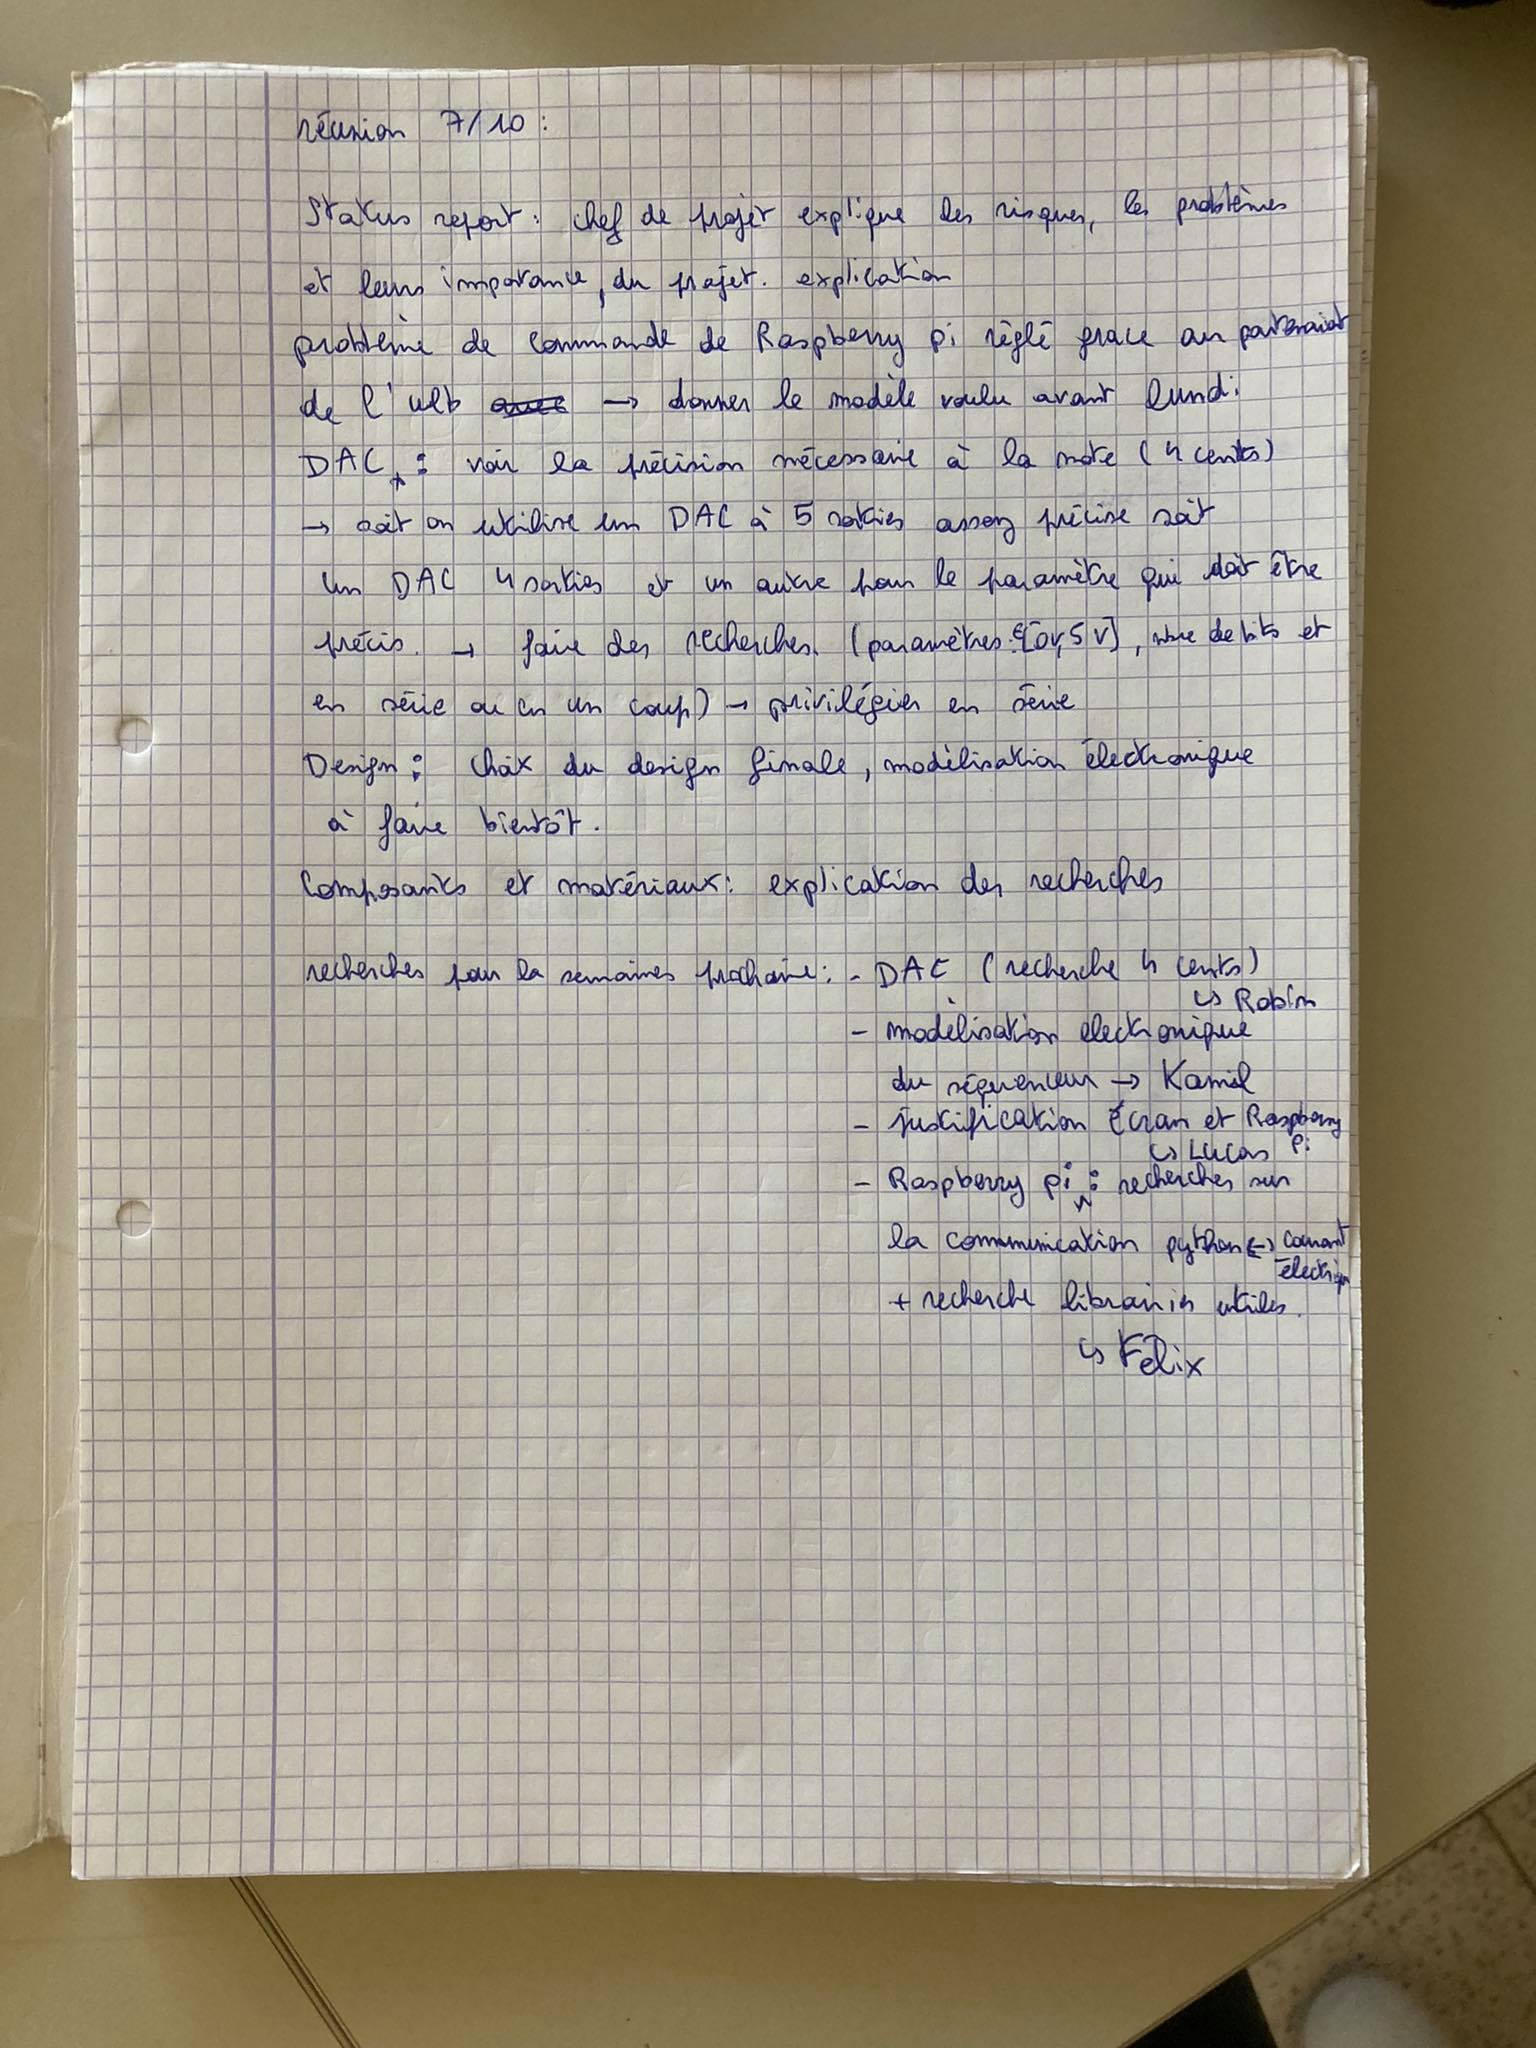 réunion 7/10 :
Status report : chef de projet explique les risques, les problèmes
et leurs importance, du projet. explication
problème de commande de Raspberry pi réglé grace au partenariat
de l'ulb → donner le modèle voulu avant lundi
DAC : voir la précision nécessaire à la note (4 cents)
→ soit on utilise un DAC à 5 sorties assez précise soit
un DAC 4 sorties et un autre pour le paramètre qui doit être
précis. → faire des recherches. (paramètres : [0V, 5V], nbre de bits et
en série ou en un coup) → privilégier en série
Design : choix du design finale, modélisation électronique
à faire bientôt.
Composants et matériaux : explication des recherches
recherches pour la semaines prochaine : - DAC (recherche 4 cents)
↳ Robin
- modélisation électronique
du séquenceur → Kamil
- justification écran et Raspberry
↳ Lucas Pi
- Raspberry pi : recherches sur
la communication python ↔ courant
électrique
+ recherche librairies utiles.
↳ Félix